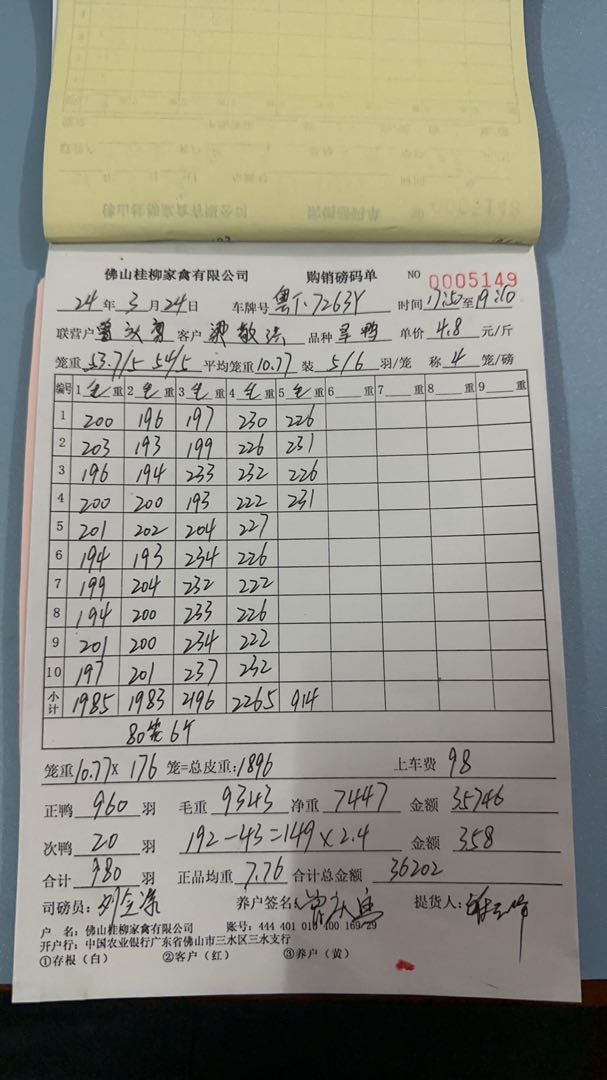 佛山桂柳家禽有限公司 购销磅码单 NO 0005149
24年3月24日 车牌号 粤 7263Y 时间 17:50至19:10
联营户 客户 品种 鸭 单价 4.8 元/斤
笼重 53.7/5 54/5 平均笼重10.77 装 5/6 羽/笼 称 4 笼/磅
编号 1毛重 2毛重 3毛重 4毛重 5毛重 6 重 7 重 8 重 9 重
1 200 196 197 230 226
2 203 193 199 226 231
3 196 194 233 232 226
4 200 200 193 222 231
5 201 202 204 227
6 194 193 234 226
7 199 204 232 222
8 194 200 233 226
9 201 200 234 222
10 197 201 237 232
小计 1985 1983 2196 2265 914
80笼6只
笼重10.77× 176 笼=总皮重:1896 上车费 98
正鸭 960 羽 毛重 9343 净重 7447 金额 35746
次鸭 20 羽 192-43=149×2.4 金额 358
合计 980 羽 正品均重 7.76 合计总金额 36202
司磅员: 养户签名 提货人:
户 名:佛山桂柳家禽有限公司 账号:444 401 010 400 169/29
开户行:中国农业银行广东省佛山市三水区三水支行
①存根(白) ②客户(红) ③养户(黄)